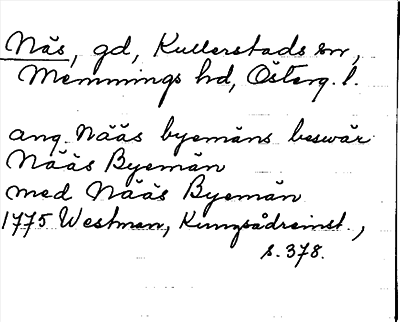 Näs, gd, Kullerstads sn,
Memmings hd, Österg. l.
ang. Nääs byemäns beswär
Nääs Byemän
med Nääs Byemän
1775 Westman, Kungsådreinst.,
s. 378.